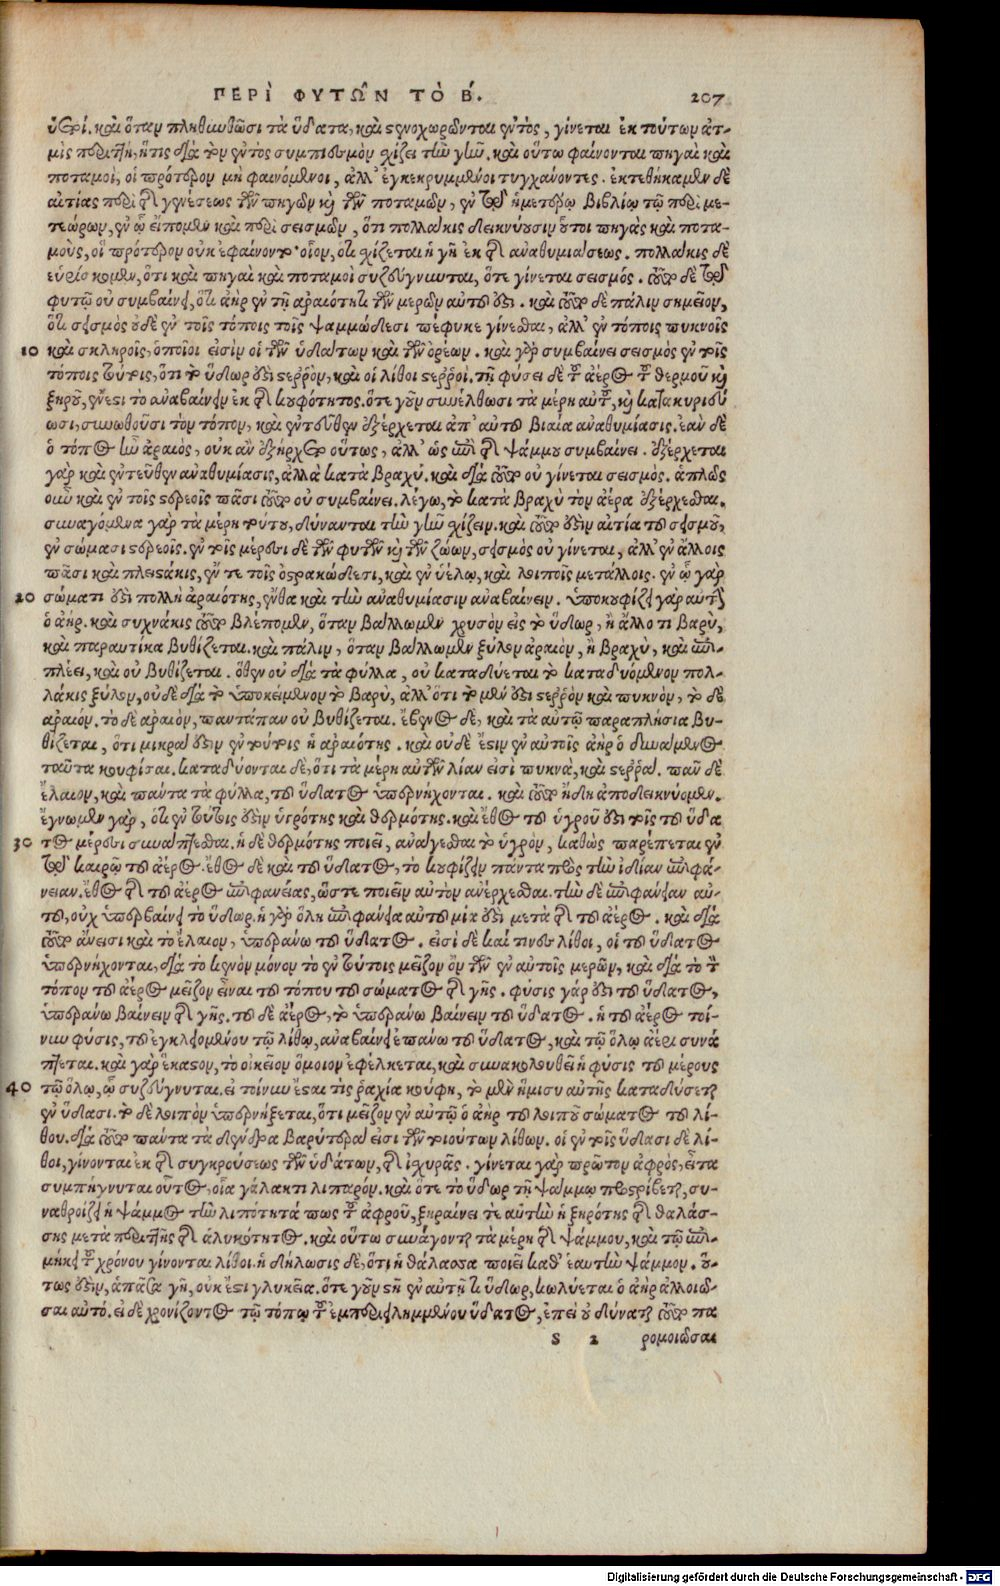 ΠΕΡῚ ΦΥΤΩ͂Ν ΤῸ Β´. 207
ὑετοί. καὶ ὅταν πληθυνθῶσι τὰ ὕδατα, καὶ στενοχωρῶνται ἐντὸς, γίνεται ἐκ τούτων ἀτ-
μὶς περιττὴ, ἥτις διὰ τὸν ἐντὸς συμπιεσμὸν σχίζει τὴν γῆν. καὶ οὕτω φαίνονται πηγαὶ καὶ
ποταμοὶ, οἱ πρότερον μὴ φαινόμενοι, ἀλλ' ἐγκεκρυμμένοι τυγχάνοντες. ἐκτεθήκαμεν δὲ
αἰτίας περὶ τῆς γενέσεως τῶν πηγῶν καὶ τῶν ποταμῶν, ἐν τῷ ἡμετέρῳ βιβλίῳ τῷ περὶ με-
τεώρων, ἐν ᾧ εἴπομεν καὶ περὶ σεισμῶν, ὅτι πολλάκις δεικνύουσιν οὗτοι πηγὰς καὶ ποτα-
μοὺς, οἳ πρότερον οὐκ ἐφαίνοντο· οἷον, ὅτι σχίζεται ἡ γῆ ἐκ τῆς ἀναθυμιάσεως. πολλάκις δὲ
εὑρίσκομεν, ὅτι καὶ πηγαὶ καὶ ποταμοὶ συζεύγνυνται, ὅτε γίνεται σεισμός. τοῦτο δὲ τῷ
φυτῷ οὐ συμβαίνει, ὅτι ἀὴρ ἐν τῇ ἀραιότητι τῶν μερῶν αὐτοῦ ἐστι. καὶ τοῦτο δὲ πάλιν σημεῖον,
ὅτι σεισμὸς οὐδὲ ἐν τοῖς τόποις τοῖς ψαμμώδεσι πέφυκε γίνεσθαι, ἀλλ' ἐν τόποις πυκνοῖς
10 καὶ σκληροῖς, ὁποῖοι εἰσὶν οἱ τῶν ὑδάτων καὶ τῶν ὀρέων. καὶ γὰρ συμβαίνει σεισμὸς ἐν τοῖς
τόποις τούτοις, ὅτι τὸ ὕδωρ ἐστὶ στερρὸν, καὶ οἱ λίθοι στερροί. τῇ φύσει δὲ τοῦ ἀέρος τοῦ θερμοῦ καὶ
ξηροῦ, ἔνεστι τὸ ἀναβαίνειν ἐκ τῆς κουφότητος. ὅτε γοῦν συνέλθωσι τὰ μέρη αὐτοῦ, καὶ κατακυριεύ
ωσι, συνωθοῦσι τὸν τόπον, καὶ ἐντεῦθεν ἐξέρχεται ἀπ' αὐτοῦ βιαία ἀναθυμίασις. ἐὰν δὲ
ὁ τόπος ἦν ἀραιὸς, οὐκ ἂν ἐξήρχετο οὕτως, ἀλλ' ὡς ἐπὶ τῆς ψάμμου συμβαίνει. ἐξέρχεται
γὰρ καὶ ἐντεῦθεν ἀναθυμίασις, ἀλλὰ κατὰ βραχύ. καὶ διὰ τοῦτο οὐ γίνεται σεισμός. ἁπλῶς
οὖν καὶ ἐν τοῖς στερεοῖς πᾶσι τοῦτο οὐ συμβαίνει. λέγω, τὸ κατὰ βραχὺ τὸν ἀέρα ἐξέρχεσθαι.
συναγόμενα γὰρ τὰ μέρη τούτου, δύνανται τὴν γῆν σχίζειν. καὶ τοῦτο ἐστὶν αἰτία τοῦ σεισμοῦ,
ἐν σώμασι στερεοῖς. ἐν τοῖς μέρεσι δὲ τῶν φυτῶν καὶ τῶν ζώων, σεισμὸς οὐ γίνεται, ἀλλ' ἐν ἄλλοις
πᾶσι καὶ πλειστάκις, ἔν τε τοῖς ὀστρακώδεσι, καὶ ἐν ὑέλῳ, καὶ λοιποῖς μετάλλοις. ἐν ᾧ γὰρ
20 σώματι ἐστὶ πολλὴ ἀραιότης, ἔνθα καὶ τὴν ἀναθυμίασιν ἀναβαίνειν. ὑποκουφίζει γὰρ αὐτὸ
ὁ ἀήρ. καὶ συχνάκις τοῦτο βλέπομεν, ὅταν βάλλωμεν χρυσὸν εἰς τὸ ὕδωρ, ἢ ἄλλο τι βαρὺ,
καὶ παραυτίκα βυθίζεται. καὶ πάλιν, ὅταν βάλλωμεν ξύλον ἀραιὸν, ἢ βραχὺ, καὶ ἐπι-
πλέει, καὶ οὐ βυθίζεται. ὅθεν οὐ διὰ τὰ φύλλα, οὐ καταδύεται τὸ καταδυόμενον πολ-
λάκις ξύλον, οὐδὲ διὰ τὸ ὑποκείμενον τὸ βαρὺ, ἀλλ' ὅτι τὸ μὲν ἐστὶ στερρὸν καὶ πυκνὸν, τὸ δὲ
ἀραιόν. τὸ δὲ ἀραιὸν, παντάπαν οὐ βυθίζεται. ἔβενος δὲ, καὶ τὰ αὐτῷ παραπλήσια βυ-
θίζεται, ὅτι μικρά ἐστιν ἐν τούτοις ἡ ἀραιότης. καὶ οὐδὲ ἔστιν ἐν αὐτοῖς ἀὴρ ὁ δυνάμενος
ταῦτα κουφίσαι. καταδύονται δὲ, ὅτι τὰ μέρη αὐτῶν λίαν εἰσὶ πυκνὰ, καὶ στερρά. πᾶν δὲ
ἔλαιον, καὶ πάντα τὰ φύλλα, τοῦ ὕδατος ὑπερνήχονται. καὶ τοῦτο ἤδη ἀποδεικνύομεν.
ἔγνωμεν γὰρ, ὅτι ἐν τούτοις ἐστὶν ὑγρότης καὶ θερμότης. καὶ ἔθος τοῦ ὑγροῦ ἐστι τοῖς τοῦ ὕδα
30 τος μέρεσι συνάπτεσθαι. ἡ δὲ θερμότης ποιεῖ, ἀνάγεσθαι τὸ ὑγρὸν, καθὼς παρέπεται ἐν
τῷ καιρῷ τοῦ ἀέρος. ἔθος δὲ καὶ τοῦ ὕδατος, τὸ κουφίζειν πάντα πρὸς τὴν ἰδίαν ἐπιφά-
νειαν. ἔθος τῆς τοῦ ἀέρος ἐπιφανείας, ὥστε ποιεῖν αὐτὸν ἀνέρχεσθαι. τὴν δὲ ἐπιφάνειαν αὐ-
τοῦ, οὐχ ὑπερβαίνει τὸ ὕδωρ. ἡ γὰρ ὅλη ἐπιφάνεια αὐτοῦ μία ἐστὶ μετὰ τῆς τοῦ ἀέρος. καὶ διὰ
τοῦτο ἄνεισι καὶ τὸ ἔλαιον, ὑπεράνω τοῦ ὕδατος. εἰσὶ δὲ καί τινες λίθοι, οἳ τοῦ ὕδατος
ὑπερνήχονται, διὰ τὸ κενὸν μόνον τὸ ἐν τούτοις μεῖζον ὂν τῶν ἐν αὐτοῖς μερῶν, καὶ διὰ τὸ τὸν
τόπον τοῦ ἀέρος μεῖζον εἶναι τοῦ τόπου τοῦ σώματος τῆς γῆς. φύσις γάρ ἐστι τοῦ ὕδατος,
ὑπεράνω βαίνειν τῆς γῆς. τοῦ δὲ ἀέρος, τὸ ὑπεράνω βαίνειν τοῦ ὕδατος. ἡ τοῦ ἀέρος τοί-
νυν φύσις, τοῦ ἐγκλειομένου τῷ λίθῳ, ἀναβαίνει ἐπάνω τοῦ ὕδατος, καὶ τῷ ὅλῳ ἀέρι συνά
πτεται. καὶ γὰρ ἕκαστον, τὸ οἰκεῖον ὅμοιον ἐφέλκεται, καὶ συνακολουθεῖ ἡ φύσις τοῦ μέρους
40 τῷ ὅλῳ, ᾧ συζεύγνυται. εἰ τοίνυν ἔσται τὶς ῥαχία κούφη, τὸ μὲν ἥμισυ αὐτῆς καταδύσεται
ἐν ὕδασι. τὸ δὲ λοιπὸν ὑπερνήξεται, ὅτι μεῖζον ἐν αὐτῷ ὁ ἀὴρ τοῦ λοιποῦ σώματος τοῦ λί-
θου. διὰ τοῦτο πάντα τὰ δένδρα βαρύτερά εἰσι τῶν τοιούτων λίθων. οἱ ἐν τοῖς ὕδασι δὲ λί-
θοι, γίνονται ἐκ τῆς συγκρούσεως τῶν ὑδάτων, τῆς ἰσχυρᾶς. γίνεται γὰρ πρῶτον ἀφρὸς, εἶτα
συμπήγνυται οὗτος, οἷα γάλακτι λιπαρόν. καὶ ὅτε τὸ ὕδωρ τῇ ψάμμῳ προστρίβεται, συ-
ναθροίζει ἡ ψάμμος τὴν λιπότητά πως τοῦ ἀφροῦ, ξηραίνει τε αὐτὴν ἡ ξηρότης τῆς θαλάσ-
σης μετὰ περιττῆς τῆς ἁλυκότητος. καὶ οὕτω συνάγονται τὰ μέρη τῆς ψάμμου, καὶ τῷ ἐπι-
μήκει τοῦ χρόνου γίνονται λίθοι. ἡ δήλωσις δὲ, ὅτι ἡ θάλασσα ποιεῖ καθ' ἑαυτὴν ψάμμον. οὕ-
τως ἐστὶν, ἅπασα γῆ, οὐκ ἔστι γλυκεῖα. ὅτε γοῦν στῇ ἐν αὐτῇ τι ὕδωρ, κωλύεται ὁ ἀὴρ ἀλλοιῶ-
σαι αὐτό. εἰ δὲ χρονίζοντος τῷ τόπῳ τοῦ ἐμπεριειλημμένου ὕδατος, ἐπεὶ οὐ δύναται τοῦτο πα
S 2 ρομοιῶσαι
Digitalisierung gefördert durch die Deutsche Forschungsgemeinschaft - DFG